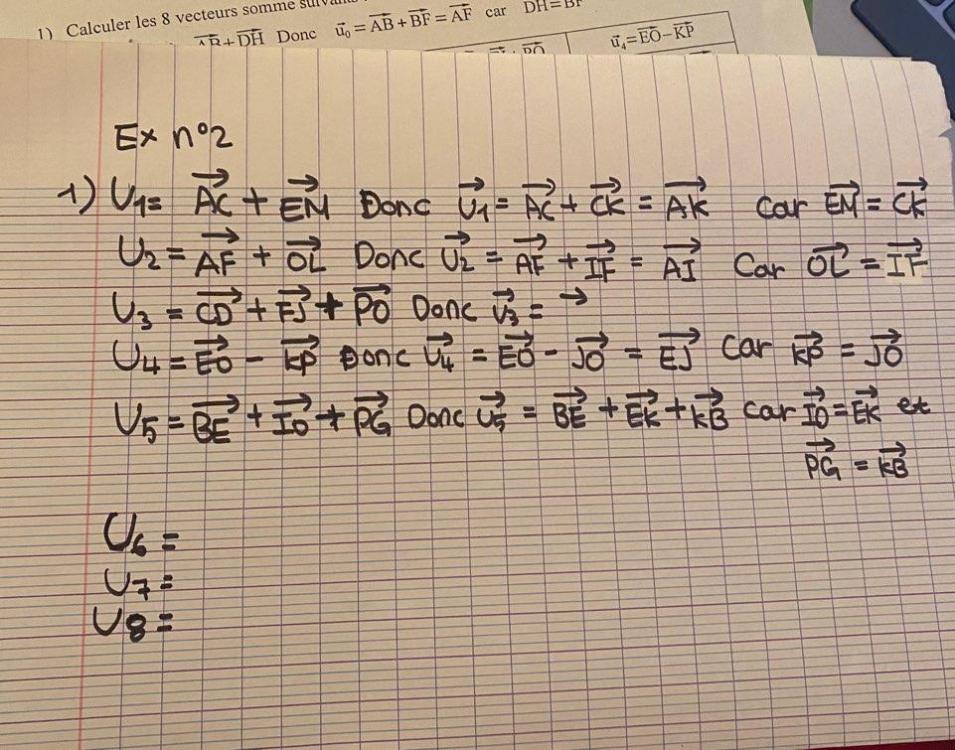 1) Calculer les 8 vecteurs somme
AB+DH Donc u₀ = AB+BF = AF car DH=BF
PO
u₄=EO−KP
Ex n°2
1) U1= AC + EM Donc U1 = AC + CK = AK Car EM = CK
U2 = AF + OL Donc U2 = AF + IF = AI Car OL = IF
U3 = CD + FJ + PO Donc U3 = →
U4 = EO - KP Donc U4 = EO - JO = EJ Car KP = JO
U5 = BE + IO + PG Donc U5 = BE + EK + KB car IO = EK et
PG = KB
U6 =
U7 =
U8 =